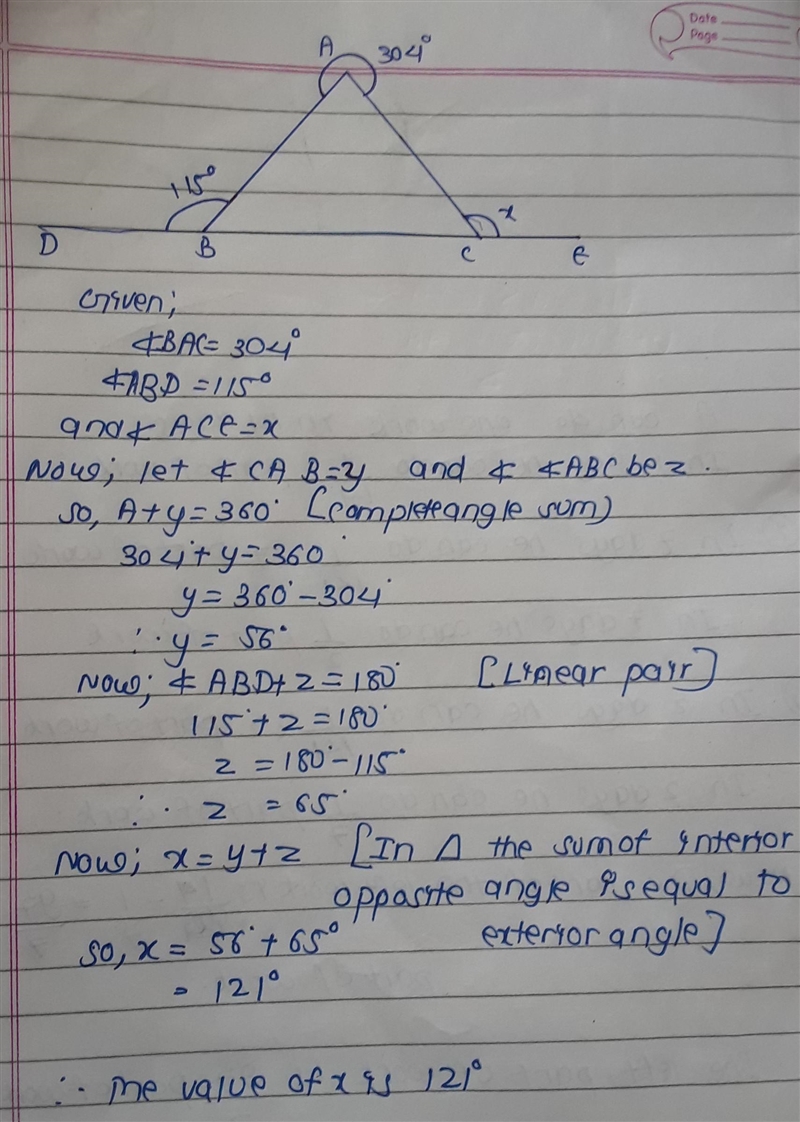 Date
Page
A 304°
115°
x
D B C E
Given;
∡BAC = 304°
∡ABD = 115°
and ∡ ACE = x
Now; let ∡ CAB = y and ∡ ∡ABC be z.
so, A + y = 360° [complete angle sum)
304° + y = 360°
y = 360° - 304°
∴ y = 56°
Now; ∡ ABD + z = 180° [Linear pair]
115° + z = 180°
z = 180° - 115°
∴ z = 65°
Now; x = y + z [In Δ the sum of interior
opposite angle is equal to
exterior angle]
so, x = 56° + 65°
= 121°
∴ The value of x is 121°